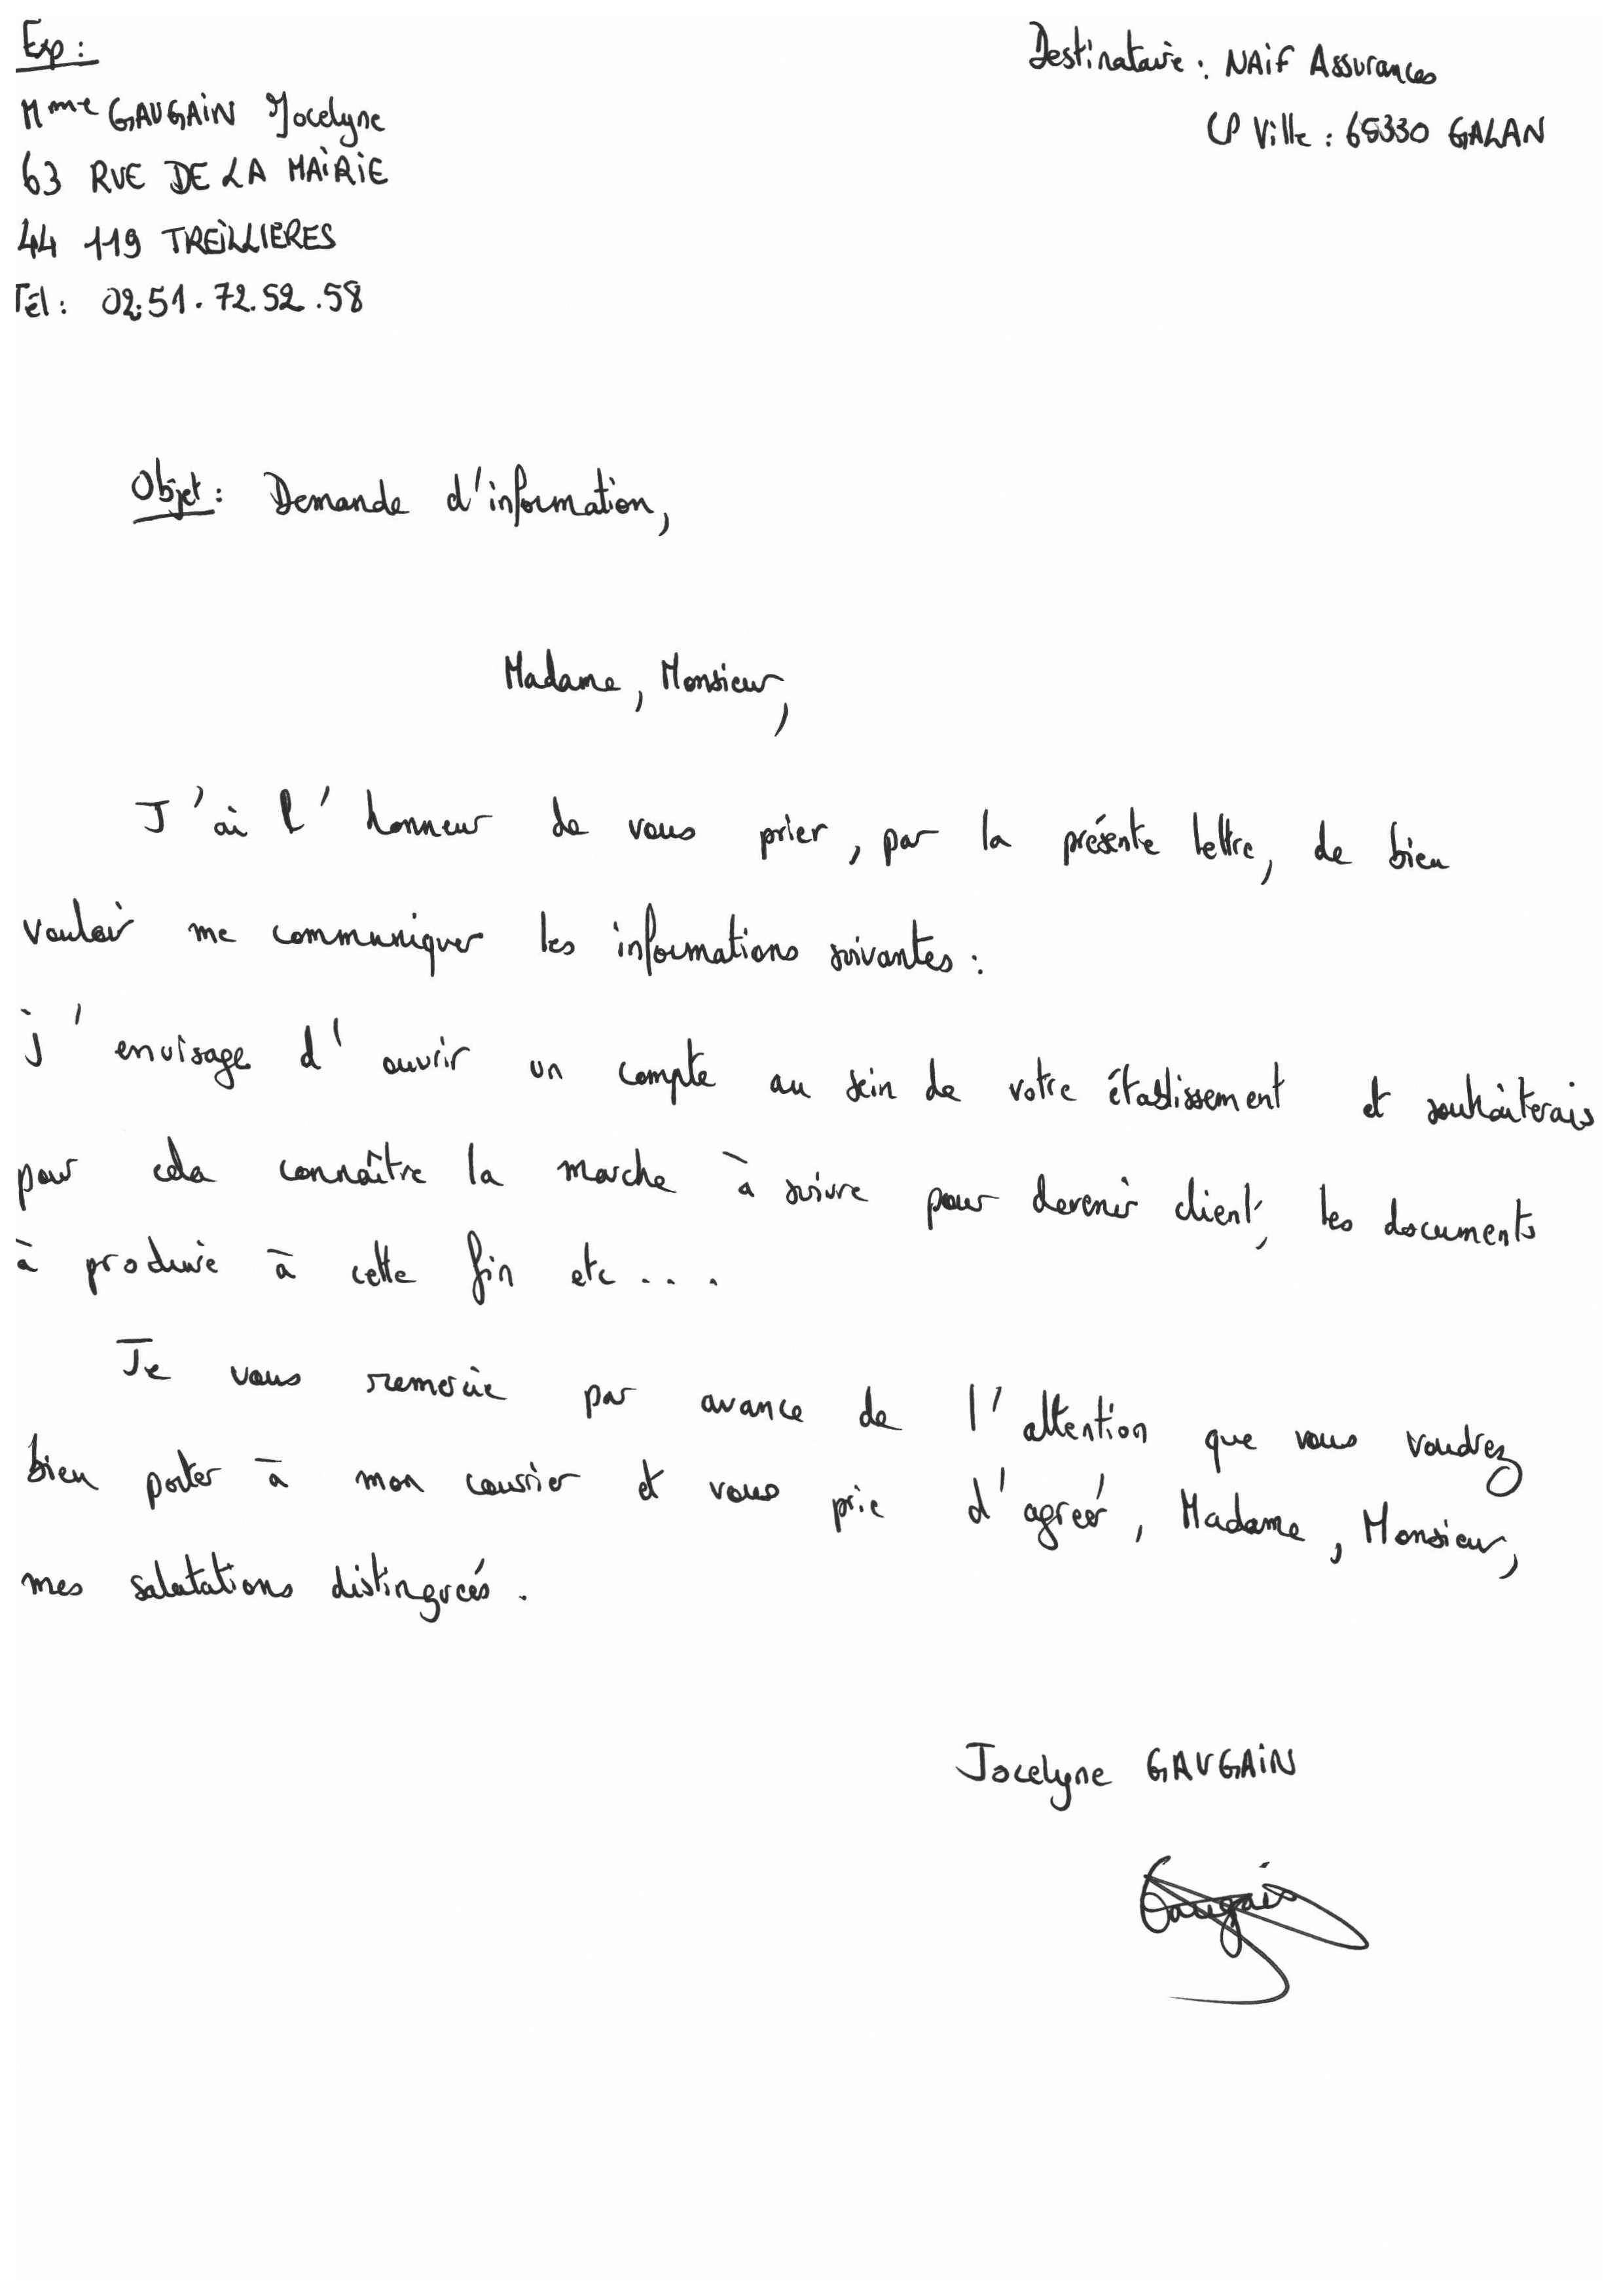 Exp :
Mme GAUGAIN Jocelyne
63 RUE DE LA MAIRIE
44 119 TREILLIERES
Tél : 02.51.72.52.58
Destinataire : NAIF Assurances
CP Ville : 65330 GALAN
Objet : Demande d'information,
Madame, Monsieur,
J'ai l'honneur de vous prier, par la présente lettre, de bien
vouloir me communiquer les informations suivantes :
j'envisage d'ouvrir un compte au sein de votre établissement et souhaiterais
pour cela connaître la marche à suivre pour devenir client, les documents
à produire à cette fin etc....
Je vous remercie par avance de l'attention que vous voudrez
bien porter à mon courrier et vous prie d'agréer, Madame, Monsieur,
mes salutations distinguées.
Jocelyne GAUGAIN
Gaugain